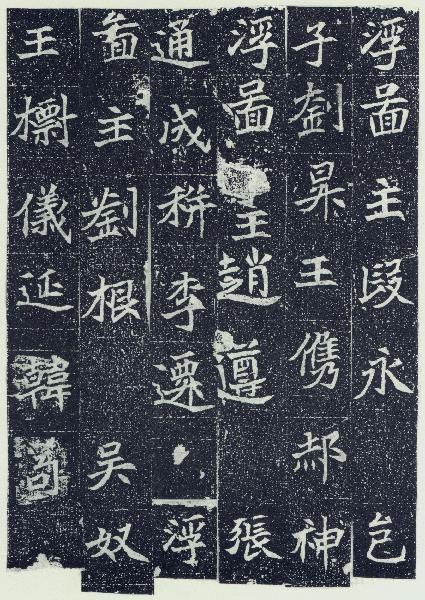 浮啚主段永
子劉昇王儁郝神
浮啚主趙遵張
通成李遷浮
啚主劉根吳奴
王檦儀延韓苟